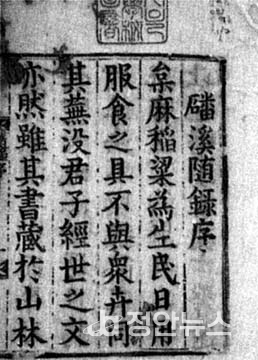 磻溪隨錄序
枲麻稻粱爲生民日用
服食之具不與衆卉同
其蕪没君子經世之文
亦然雖其書藏於山林
정안뉴스